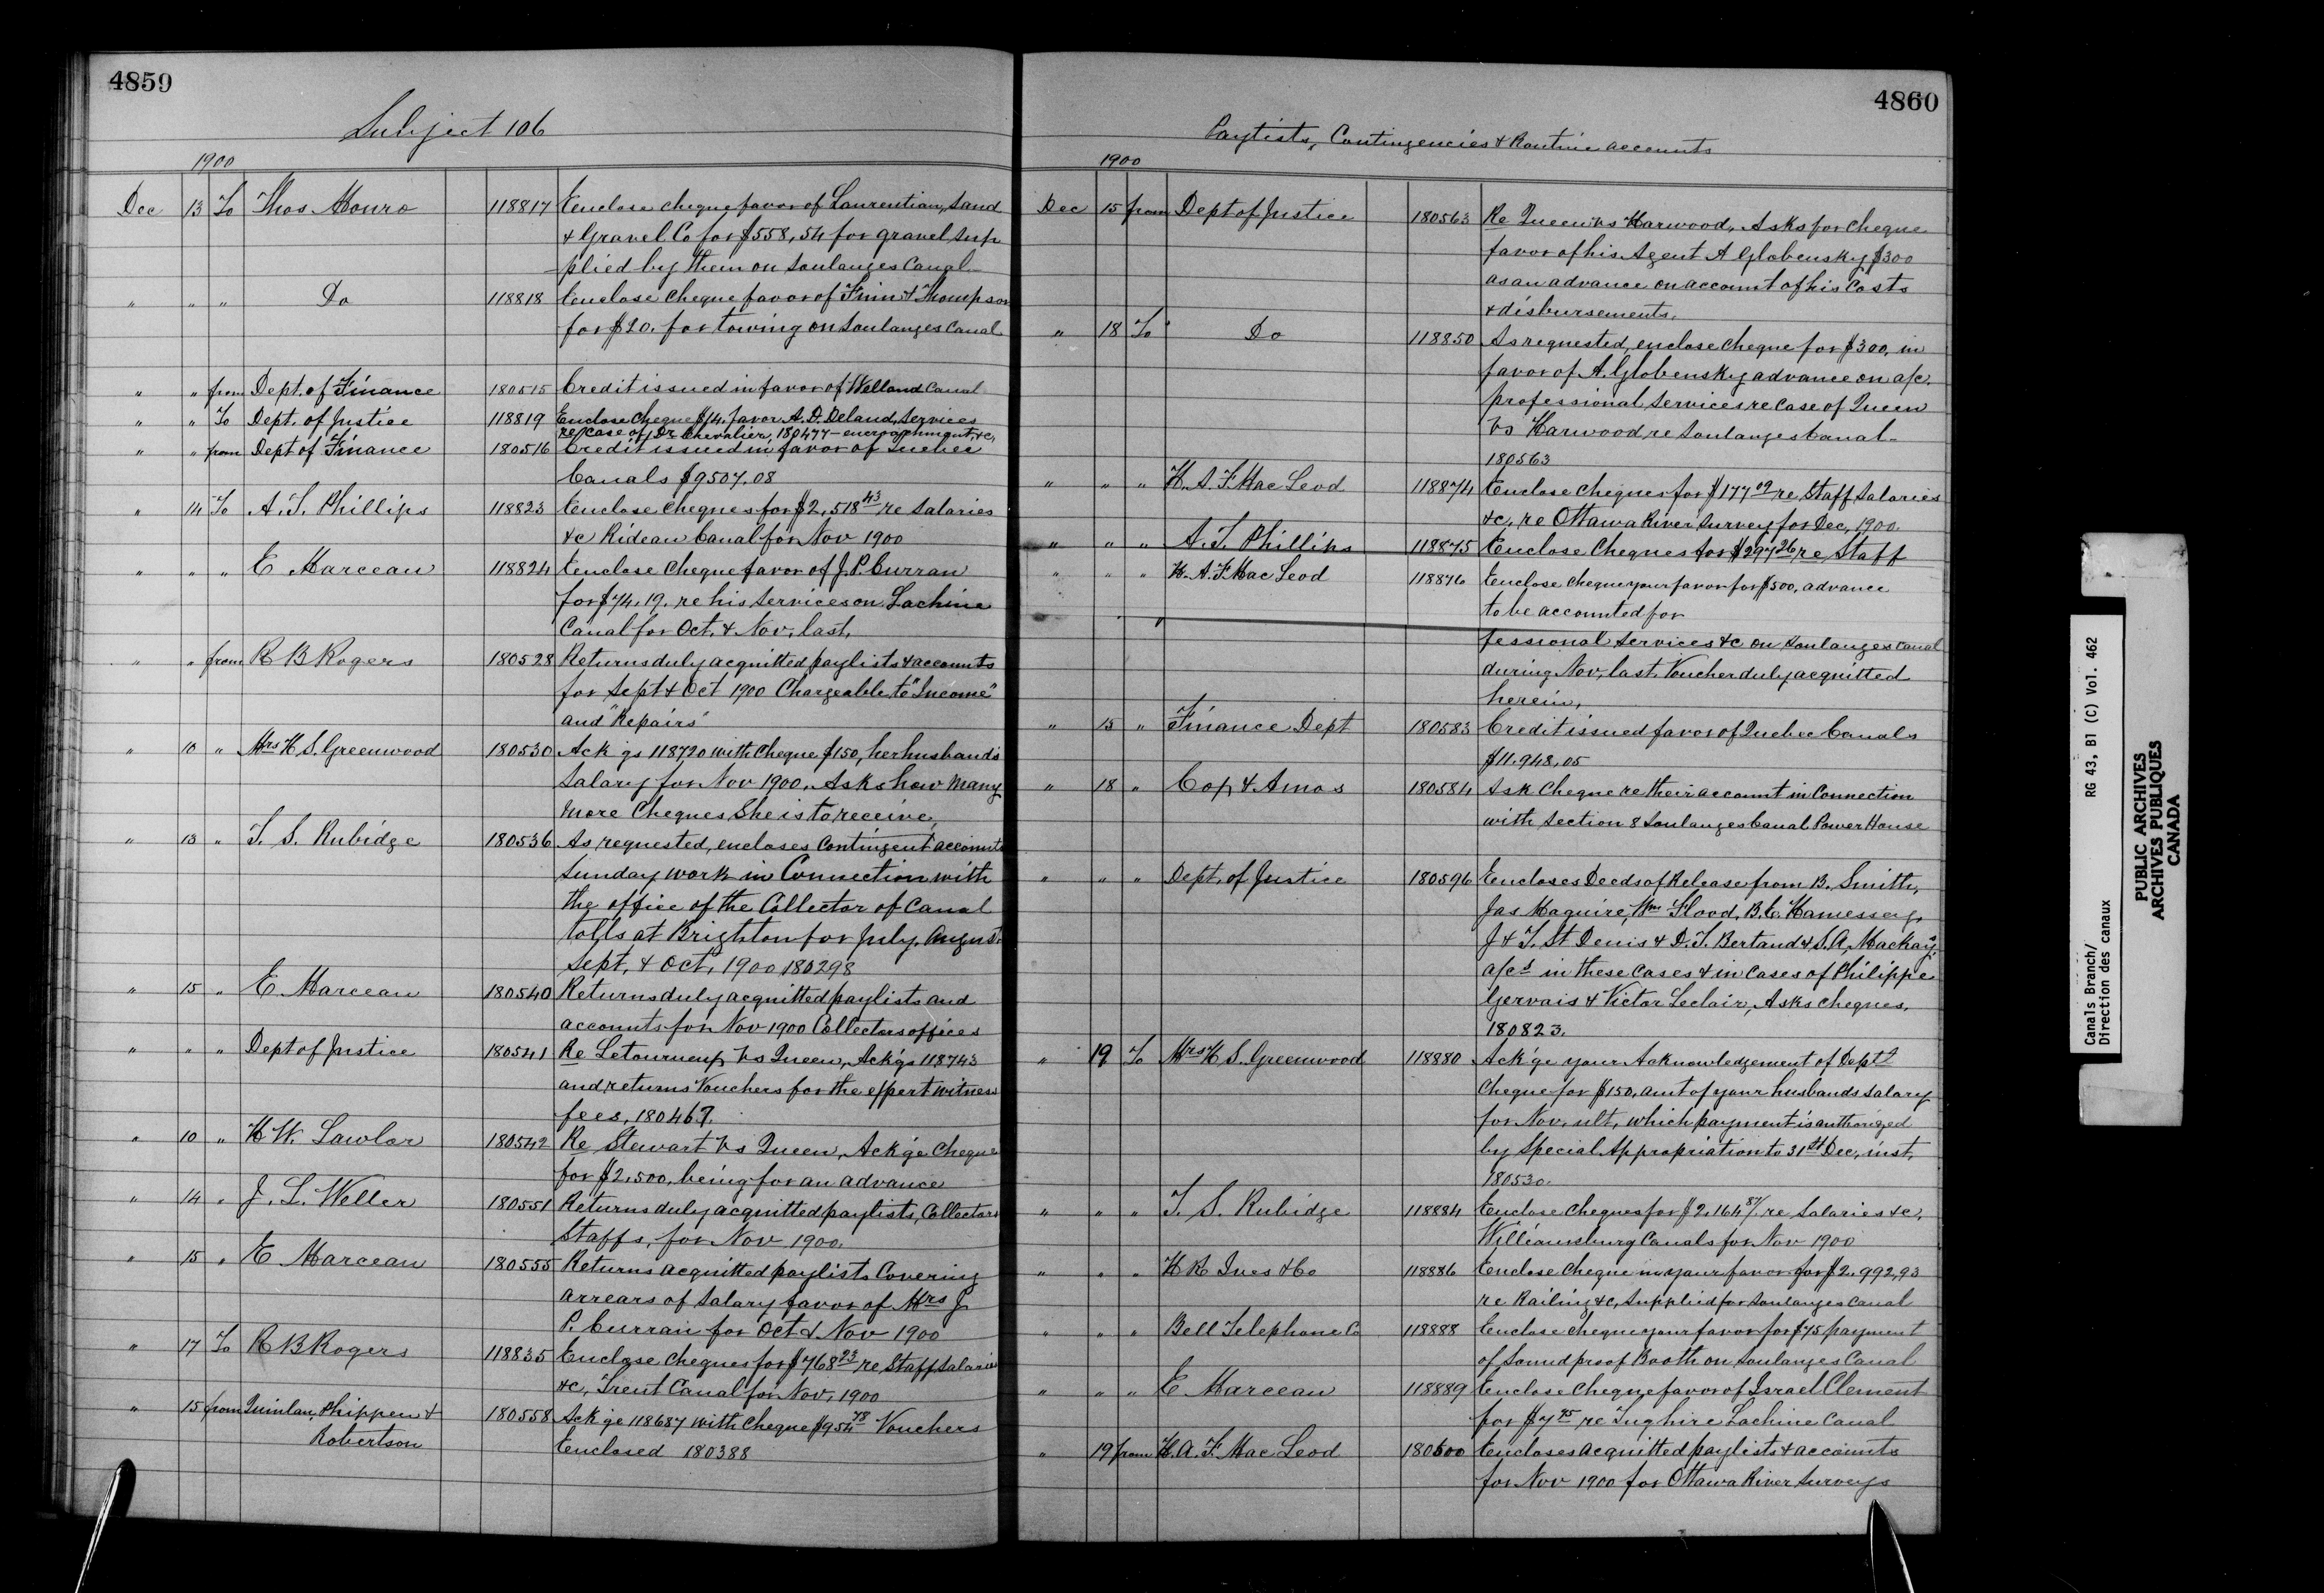 4859
Subject 106
1900
Dec 13 To Thos Monro 118817 Enclose cheque favor of Laurentian, Sand
& Gravel Co for $558,54 for gravel sup
plied by them on Soulanges Canal
" " " Do 118818 Enclose cheque favor of Finn & Thompson
for $20. for towing on Soulanges Canal
" " from Dept. of Finance 180515 Credit issued in favor of Welland Canal
" " To Dept. of Justice 118819 Enclose cheque $14. favor A. D. Deland, Services
re case of Dr Chevalier, 180477 - encroachment, &c,
" " from Dept of Finance 180516 Credit issued in favor of Quebec
Canals $9507.08
" 14 To A. T. Phillips 118823 Enclose cheques for $2,518 43 re Salaries
&c Rideau Canal for Nov 1900
" " " E Marceau 118824 Enclose cheque favor of J. P. Curran
for $74.19. re his services on Lachine
Canal for Oct. & Nov, last.
" " from R B Rogers 180528 Returns duly acquitted paylists & accounts
for Sept & Oct 1900 Chargeable to "Income"
and "Repairs"
" 10 " Mrs H S. Greenwood 180530 Ack'gs 118720 with cheque $150, her husband's
Salary for Nov 1900. Asks how many
more Cheques She is to receive,
" 13 " T. S. Rubidge 180536 As requested, encloses contingent accounts
Sunday work in Connection with
the office of the Collector of Canal
tolls at Brighton for July. August
Sept, & Oct, 1900 180298
" 15 " E. Marceau 180540 Returns duly acquitted paylists and
accounts for Nov 1900 Collectors offices
" " " Dept of Justice 180541 Re Letourneux Vs Queen, Ack'gs 118743
and returns Vouchers for the expert witness
fees, 180467.
" 10 " H W. Lawlor 180542 Re Stewart Vs Queen, Ack'ge Cheque
for $2.500, being for an advance
" 14 " J. L. Weller 180551 Returns duly acquitted paylists, Collectors
Staffs, for Nov 1900.
" 15 " E Marceau 180555 Returns acquitted paylists Covering
arrears of Salary favor of Mrs J
P. Curran for Oct & Nov 1900
" 17 To R B Rogers 118835 Enclose cheques for $768 23 re Staff Salaries
&c, Trent Canal for Nov, 1900
" 15 from Quinlan, Phippen & 180558 Ack'ge 118687 with Cheque $954 78 Vouchers
Robertson Enclosed 180388
4860
Paylists, Contingencies & Routine accounts
1900
Dec 15 from Dept of Justice 180563 Re Queen vs Harwood, Asks for cheque
favor of his Agent A Globensky $300
as an advance on account of his Costs
& disbursements.
" 18 To Do 118850 As requested, enclose cheque for $300, in
favor of A. Globensky advance on a/c.
professional services re case of Queen
Vs Harwood re Soulanges Canal -
180563
" " " H. A. F. Mac Leod 118874 Enclose cheques for $177 09 re Staff Salaries
&c, re Ottawa River Survey for Dec, 1900
" " " A. T. Phillips 118875 Enclose Cheques for $297 26 re Staff
" " " H. A. F. Mac Leod 118876 Enclose cheque your favor for $500, advance
to be accounted for
fessional services &c on Soulanges Canal
during Nov, last. Voucher duly acquitted
herein,
" 15 " Finance Dept 180583 Credit issued favor of Quebec Canals
$11.948.05
" 18 " Cop & Amos 180584 Ask Cheque re their account in Connection
with Section 8 Soulanges Canal Power House
" " " Dept. of Justice 180596 Encloses Deeds of Release from B. Smith,
Jas Maguire, Wm Flood, B. C. Hamessey,
J & T. St Denis & D. T. Bertand & S. A, Mackay's
a/cs in these Cases & in Cases of Philippe
Gervais & Victor Leclair, Asks cheques.
180823.
" 19 To Mrs H S. Greenwood 118880 Ack'ge your Acknowledgement of Dept's
cheque for $150, amt of your husbands salary
for Nov, ult, which payment is authorized
by Special Appropriation to 31st Dec, inst,
180530.
" " " T. S. Rubidge 118884 Enclose cheques for $2,164 87/ re Salaries &c,
Williamsburg Canals for Nov 1900
" " " H R Ives & Co 118886 Enclose cheque in your favor for $2,992,93
re Railing &c, supplied for Soulanges Canal
" " " Bell Telephone Co 118888 Enclose cheque your favor for $75 payment
of Sound proof Booth on Soulanges Canal
" " " E Marceau 118889 Enclose Cheque favor of Israel Clement
for $7 95 re Tug hire Lachine Canal
" 19 from H. A. F. Mac Leod 180600 Encloses acquitted paylists & accounts
for Nov 1900 for Ottawa River Surveys
Canals Branch/ RG 43, B1 (C) Vol. 462
Direction des canaux
PUBLIC ARCHIVES
ARCHIVES PUBLIQUES
CANADA